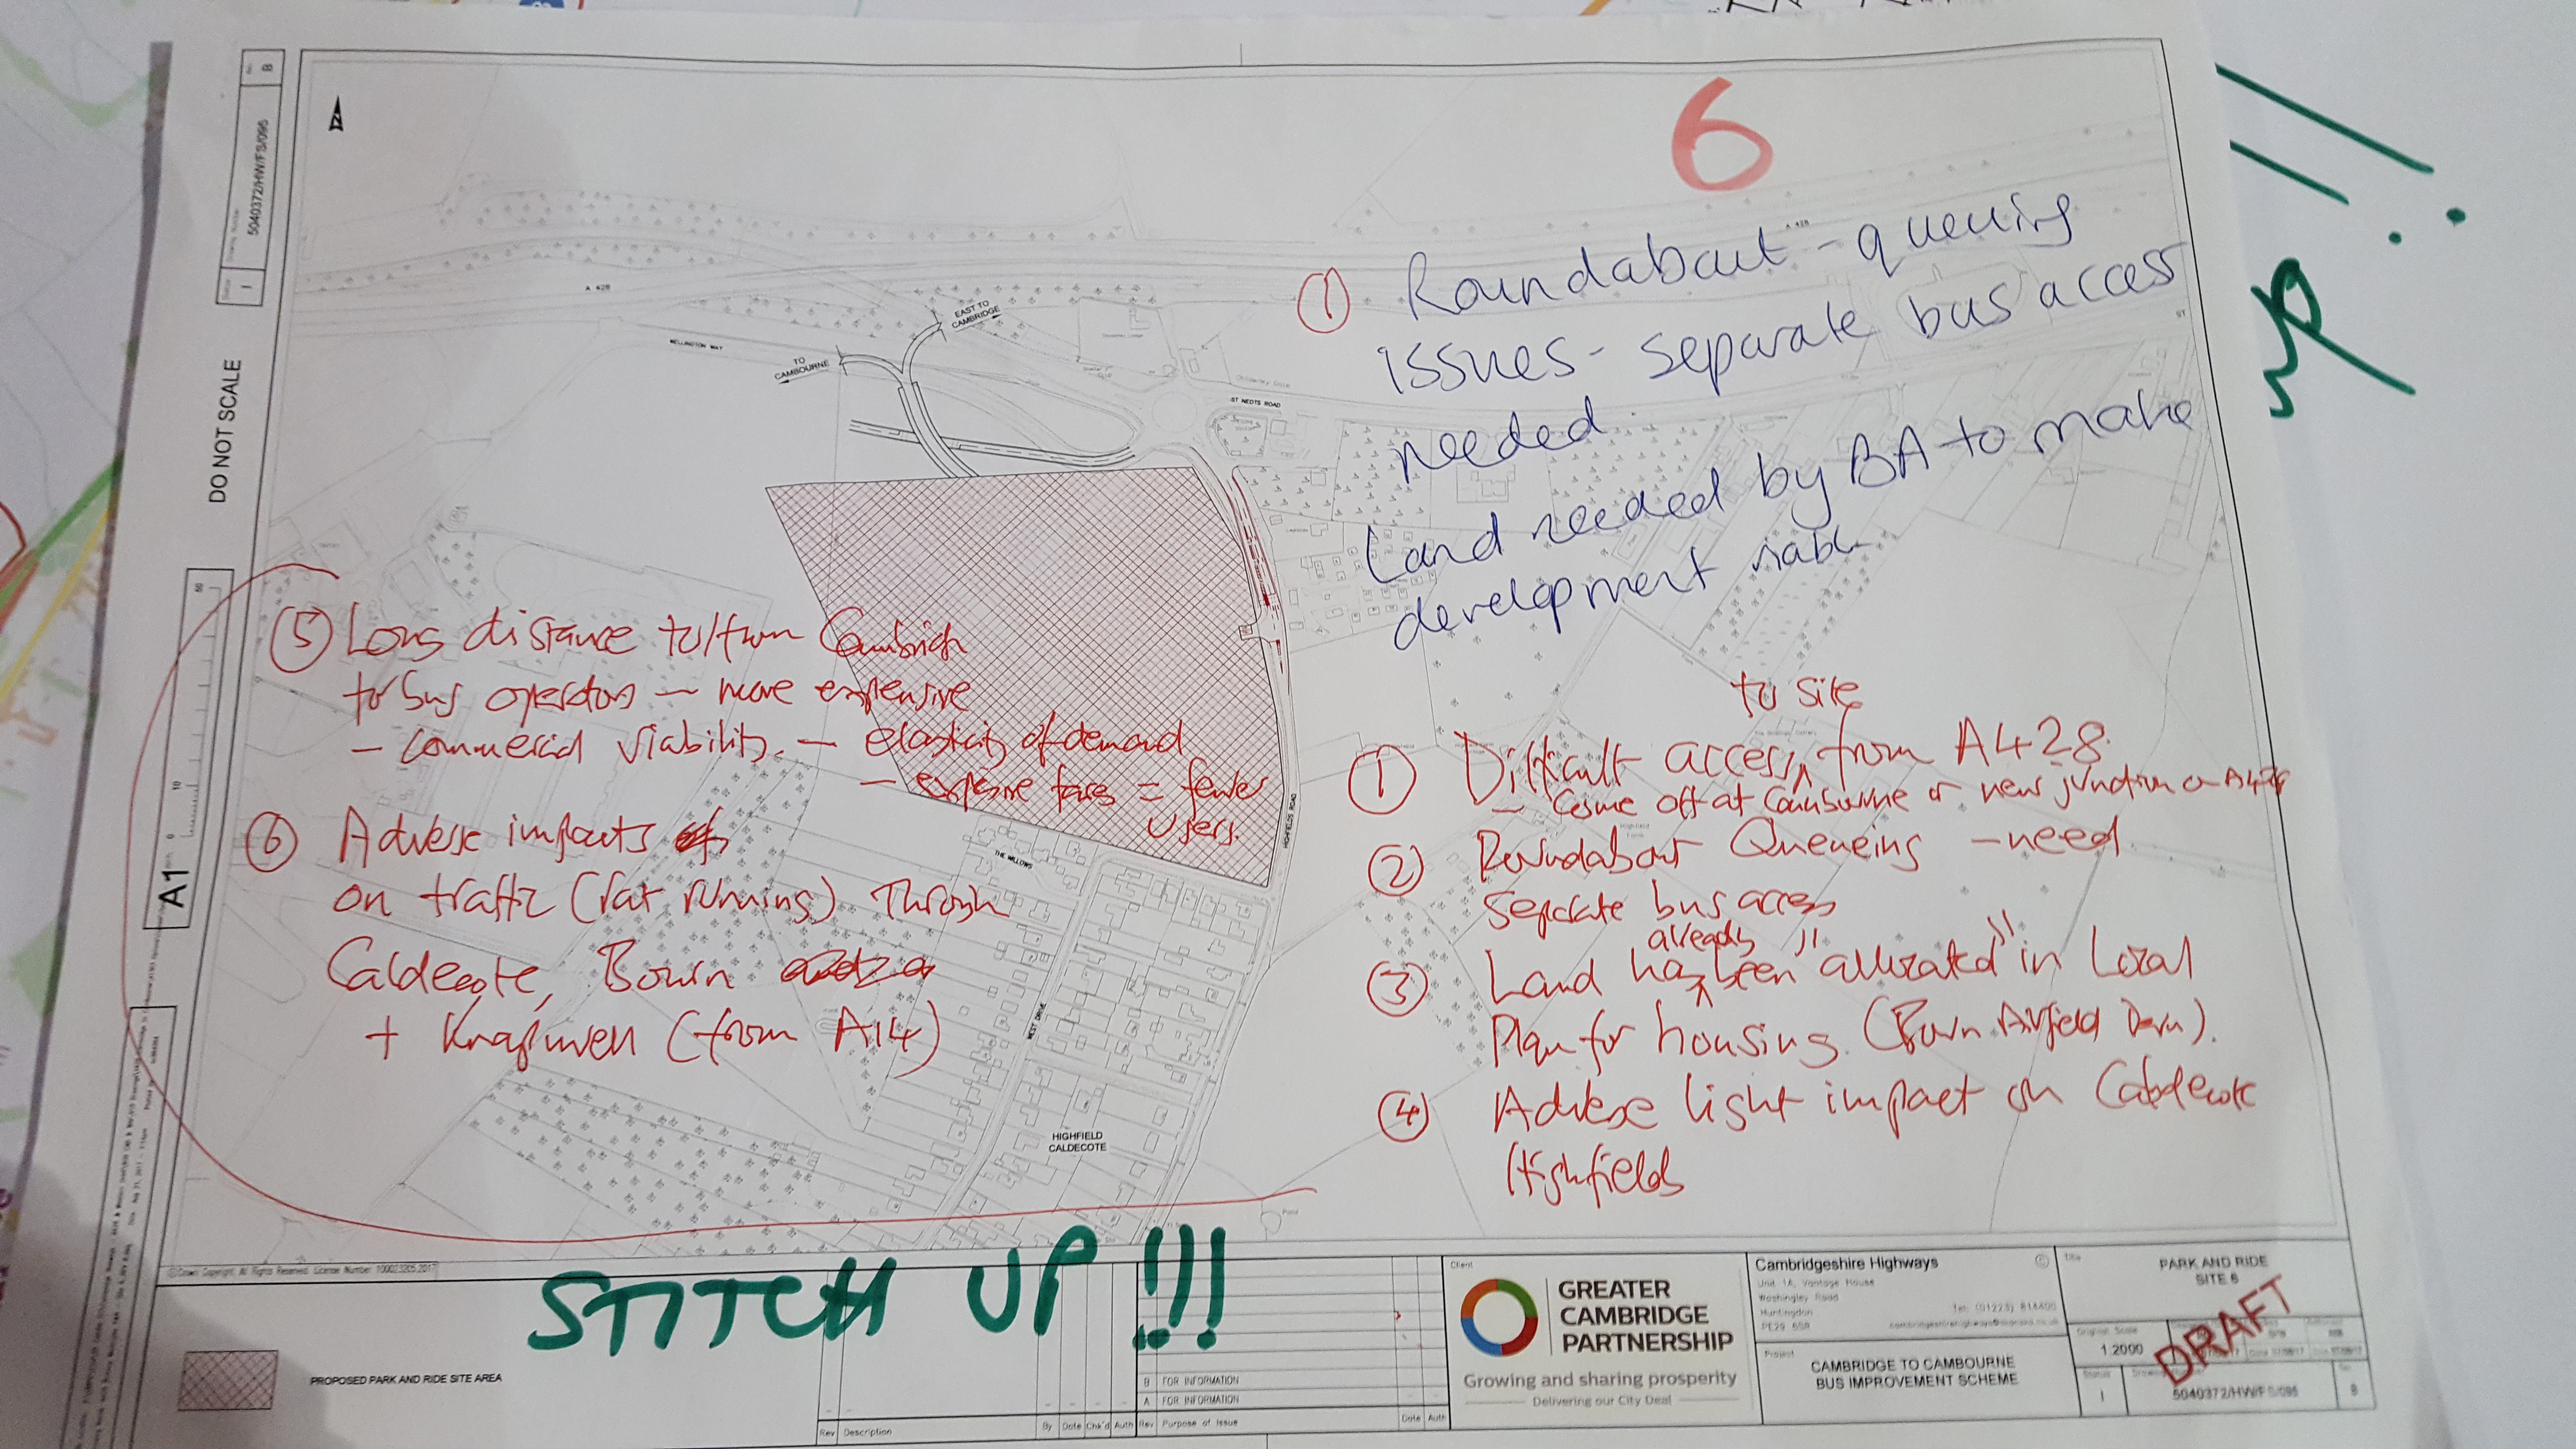 6
up!!
Rev B
5040372/HW/FS/095
I
DO NOT SCALE
A1
A 428
A 428
EAST TO
CAMBRIDGE
TO
CAMBOURNE
WELLINGTON WAY
ST NEOTS ROAD
ST
HIGHFIELDS ROAD
THE WILLOWS
WEST DRIVE
HIGHFIELD
CALDECOTE
Pond
① Roundabout - queuing
issues - separate bus access
needed.
Land needed by BA to make
development viable
⑤ Long distance to/from Cambridge
for bus operators — more expensive
— commercial viability. — elasticity of demand
— expensive fares = fewer
users.
⑥ Adverse impacts
on traffic (rat running) through
Caldecote, Bourn
+ Knapwell (from A14)
to site
① Difficult access from A428.
— Come off at Cambourne or new junction on A428
② Roundabout Queueing — need
separate bus access
already
③ Land has been "allocated" in Local
Plan for housing. (Bourn Airfield Devn).
④ Adverse light impact on Caldecote
Highfields
STITCH UP!!!
©Crown Copyright. All Rights Reserved. License Number 100023205.2017
PROPOSED PARK AND RIDE SITE AREA
B FOR INFORMATION
A FOR INFORMATION
Rev Description By Date Chk'd Auth Rev Purpose of Issue Date Auth
Client
GREATER
CAMBRIDGE
PARTNERSHIP
Growing and sharing prosperity
Delivering our City Deal
Cambridgeshire Highways
Unit 1A, Vantage House
Washingley Road
Huntingdon
PE29 6SR
Project
CAMBRIDGE TO CAMBOURNE
BUS IMPROVEMENT SCHEME
Title
PARK AND RIDE
SITE 6
DRAFT
Original Scale
1:2000
Status
I
5040372/HW/FS/095
B